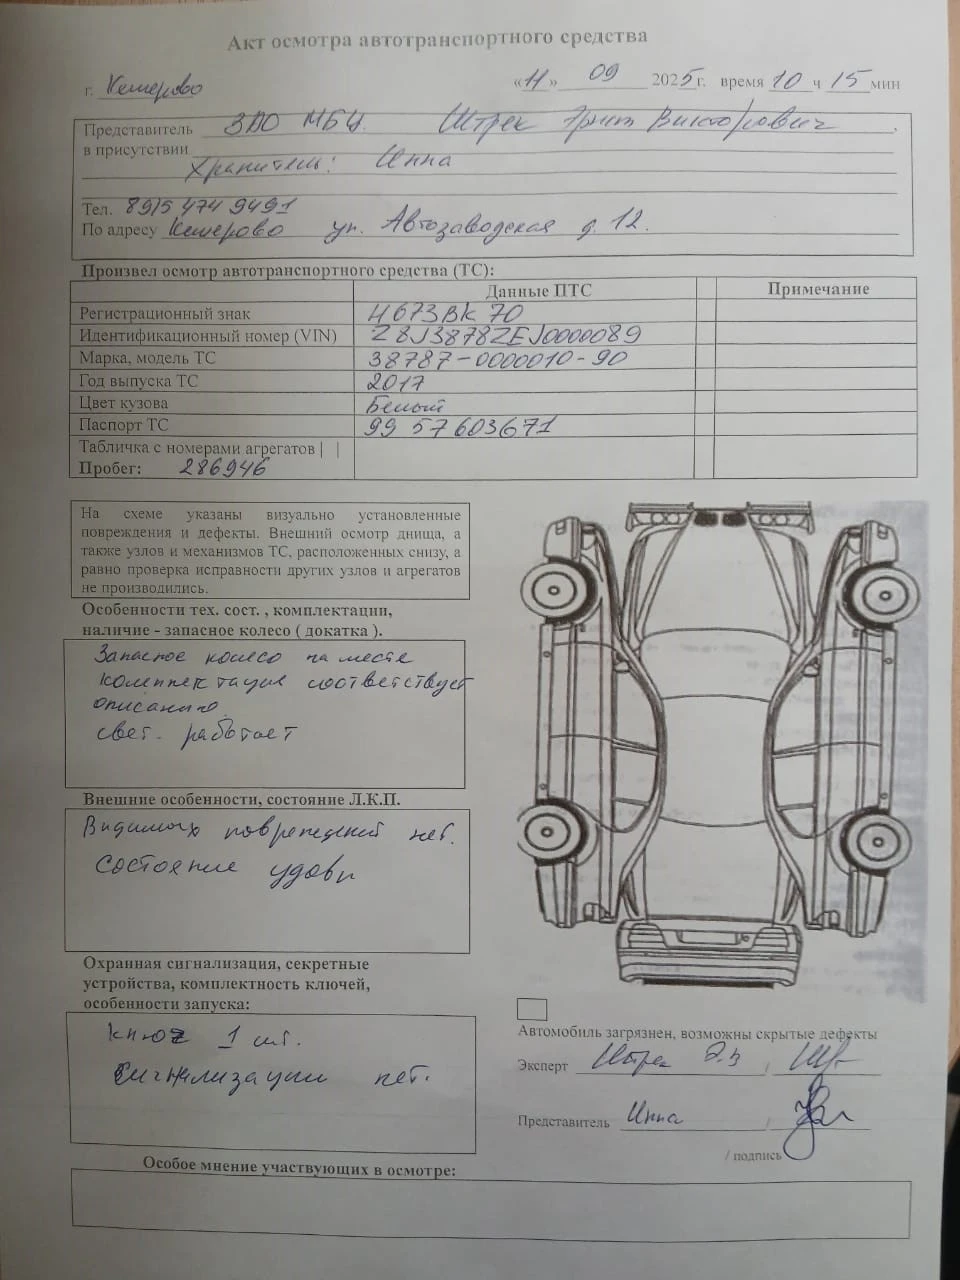 Акт осмотра автотранспортного средства
г. Кемерово «11» 09 2025г. время 10 ч 15 мин
Представитель ЗАО МБЦ. Штрек Эрит Викторович
в присутствии
Хранитель: Инна
Тел. 8915 474 9491
По адресу Кемерово ул. Автозаводская д. 12.
Произвел осмотр автотранспортного средства (ТС):
Данные ПТС Примечание
Регистрационный знак Н673ВК 70
Идентификационный номер (VIN) Z8J3878ZEJ0000089
Марка, модель ТС 38787-0000010-90
Год выпуска ТС 2017
Цвет кузова Белый
Паспорт ТС 99 57 603671
Табличка с номерами агрегатов | |
Пробег: 286946
На схеме указаны визуально установленные
повреждения и дефекты. Внешний осмотр днища, а
также узлов и механизмов ТС, расположенных снизу, а
равно проверка исправности других узлов и агрегатов
не производились.
Особенности тех. сост. , комплектации,
наличие - запасное колесо ( докатка ).
Запасное колесо на месте
комплектация соответствует
описанию.
свет. работает
Внешние особенности, состояние Л.К.П.
Видимых повреждений нет.
Состояние удовл
Охранная сигнализация, секретные
устройства, комплектность ключей,
особенности запуска:
Ключ 1 шт.
Сигнализации нет.
Автомобиль загрязнен, возможны скрытые дефекты
Эксперт Штрек Э.В /
Представитель Инна /
/ подпись
Особое мнение участвующих в осмотре: